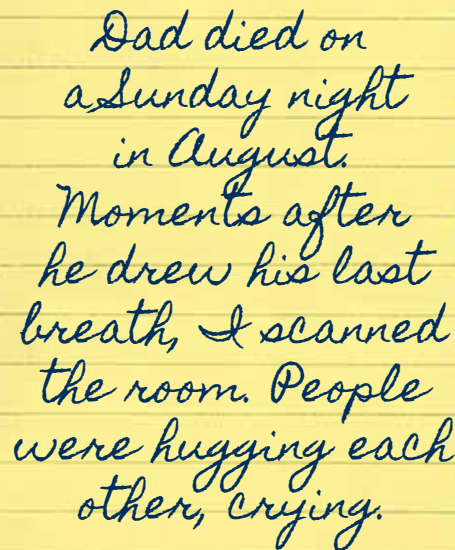 Dad died on
a Sunday night
in August.
Moments after
he drew his last
breath, I scanned
the room. People
were hugging each
other, crying.